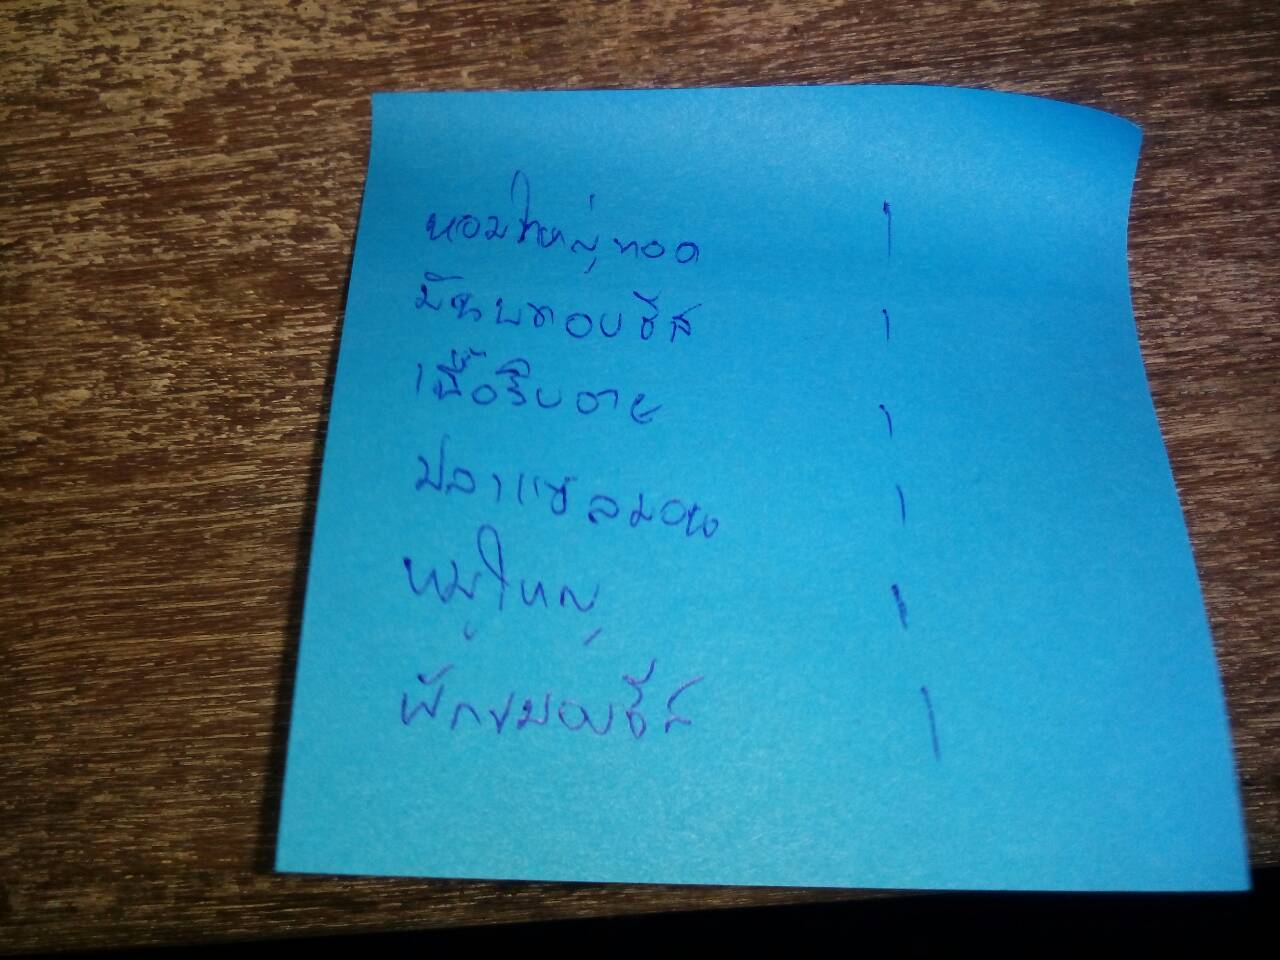 หอมใหญ่ทอด 1
มันบดอบชีส 1
เนื้อริบอาย 1
ปลาแซลมอน 1
หมูใหญ่ 1
ผักขมอบชีส 1